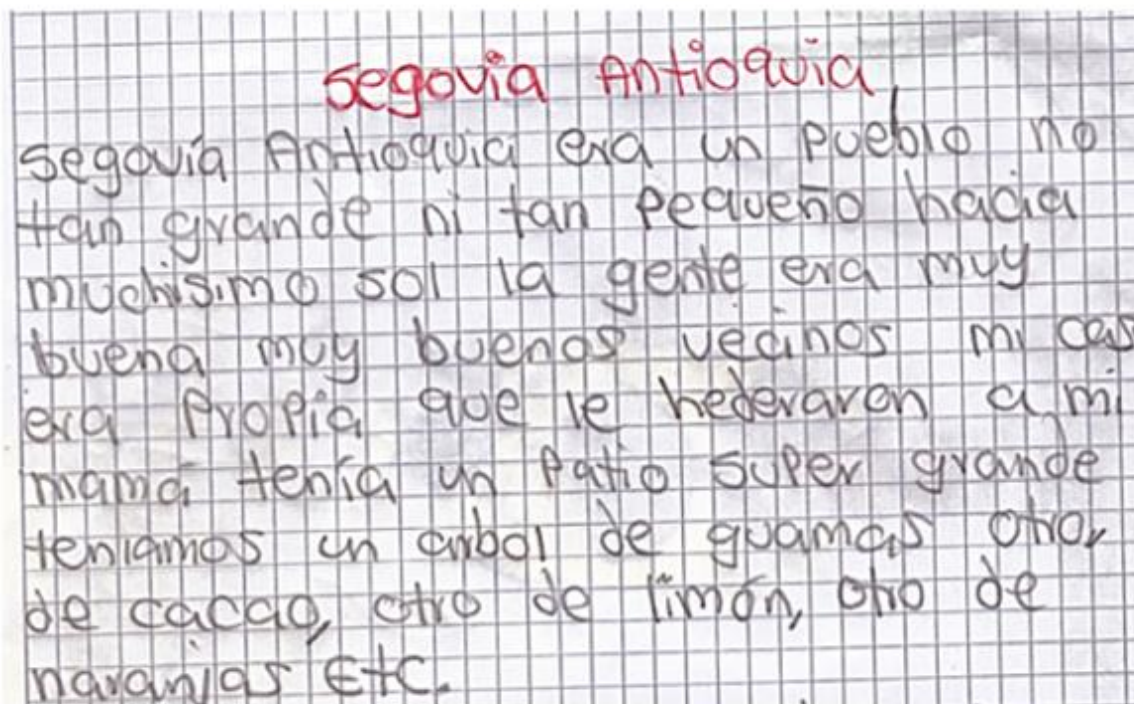 Segovia Antioquia
Segovía Antioquia era un pueblo no
tan grande ni tan pequeño hacia
muchisimo sol la gente era muy
buena muy buenos vecinos mi cas
era propia que le hederaron a mi
mamá tenía un patio super grande
teniamos un arbol de guamas otro,
de cacao, otro de limón, otro de
naranjas Etc.